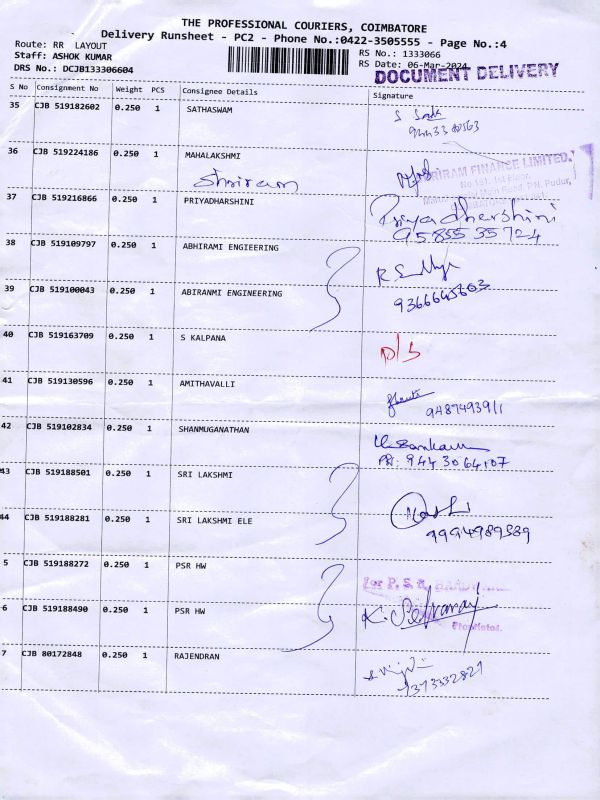 THE PROFESSIONAL COURIERS, COIMBATORE
Delivery Runsheet - PC2 - Phone No.:0422-3505555 - Page No.:4
Route: RR LAYOUT
RS No.: 1333066
Staff: ASHOK KUMAR
RS Date: 06-Mar-2024
DRS No.: DCJB133306604
DOCUMENT DELIVERY
S No Consignment No Weight PCS Consignee Details Signature
35 CJB 519182602 0.250 1 SATHASWAM
36 CJB 519224186 0.250 1 MAHALAKSHMI
SHRIRAM FINANCE LIMITED.
Shriram
37 CJB 519216866 0.250 1 PRIYADHARSHINI Priyadharshini
95855 35724
38 CJB 519109797 0.250 1 ABHIRAMI ENGIEERING
39 CJB 519100043 0.250 1 ABIRANMI ENGINEERING
40 CJB 519163709 0.250 1 S KALPANA D/S
41 CJB 519130596 0.250 1 AMITHAVALLI
9487493911
42 CJB 519102834 0.250 1 SHANMUGANATHAN
PH: 9443064107
43 CJB 519188501 0.250 1 SRI LAKSHMI
44 CJB 519188281 0.250 1 SRI LAKSHMI ELE
9994989589
5 CJB 519188272 0.250 1 PSR HW
For P. S. R.
6 CJB 519188490 0.250 1 PSR HW
7 CJB 80172848 0.250 1 RAJENDRAN